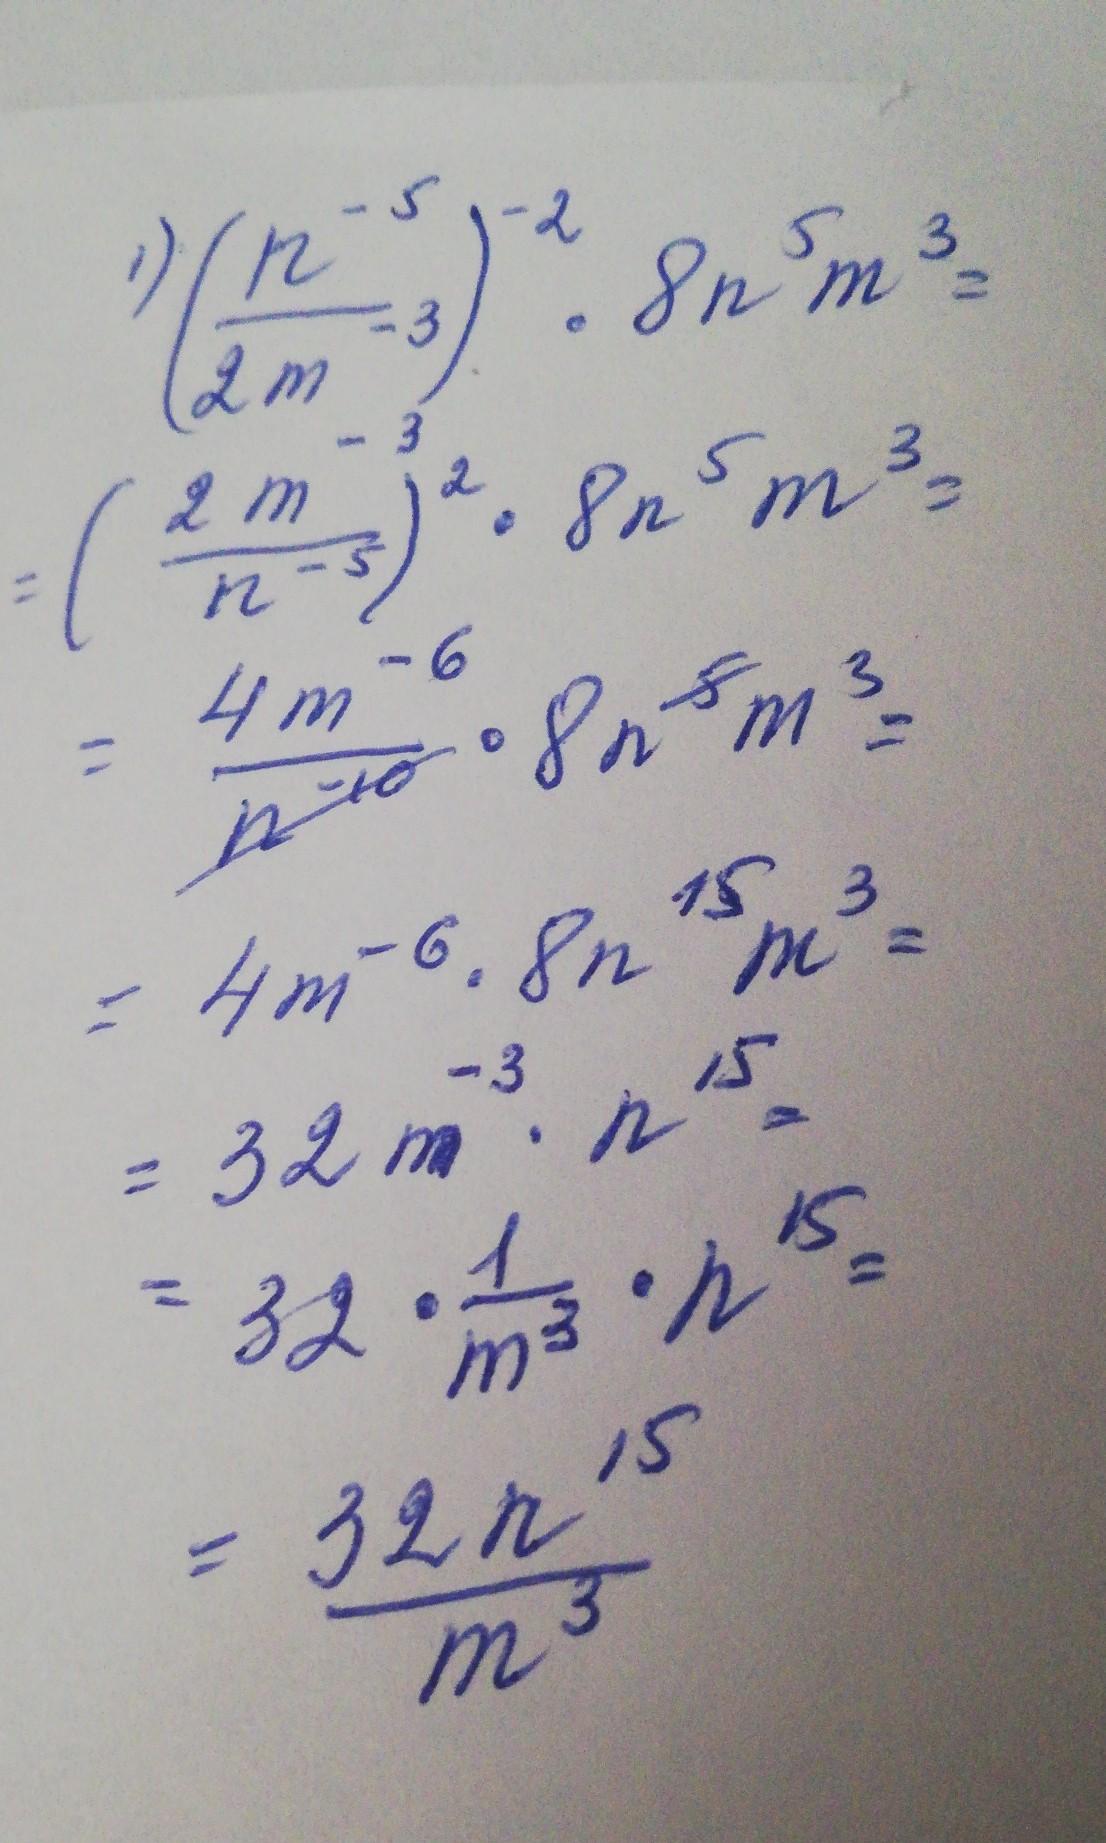 1) (n^-5 / 2m^-3)^-2 · 8n^5m^3 =
= (2m^-3 / n^-5)^2 · 8n^5m^3 =
= 4m^-6 / n^-10 · 8n^5m^3 =
= 4m^-6 · 8n^15m^3 =
= 32m^-3 · n^15 =
= 32 · 1/m^3 · n^15 =
= 32n^15 / m^3